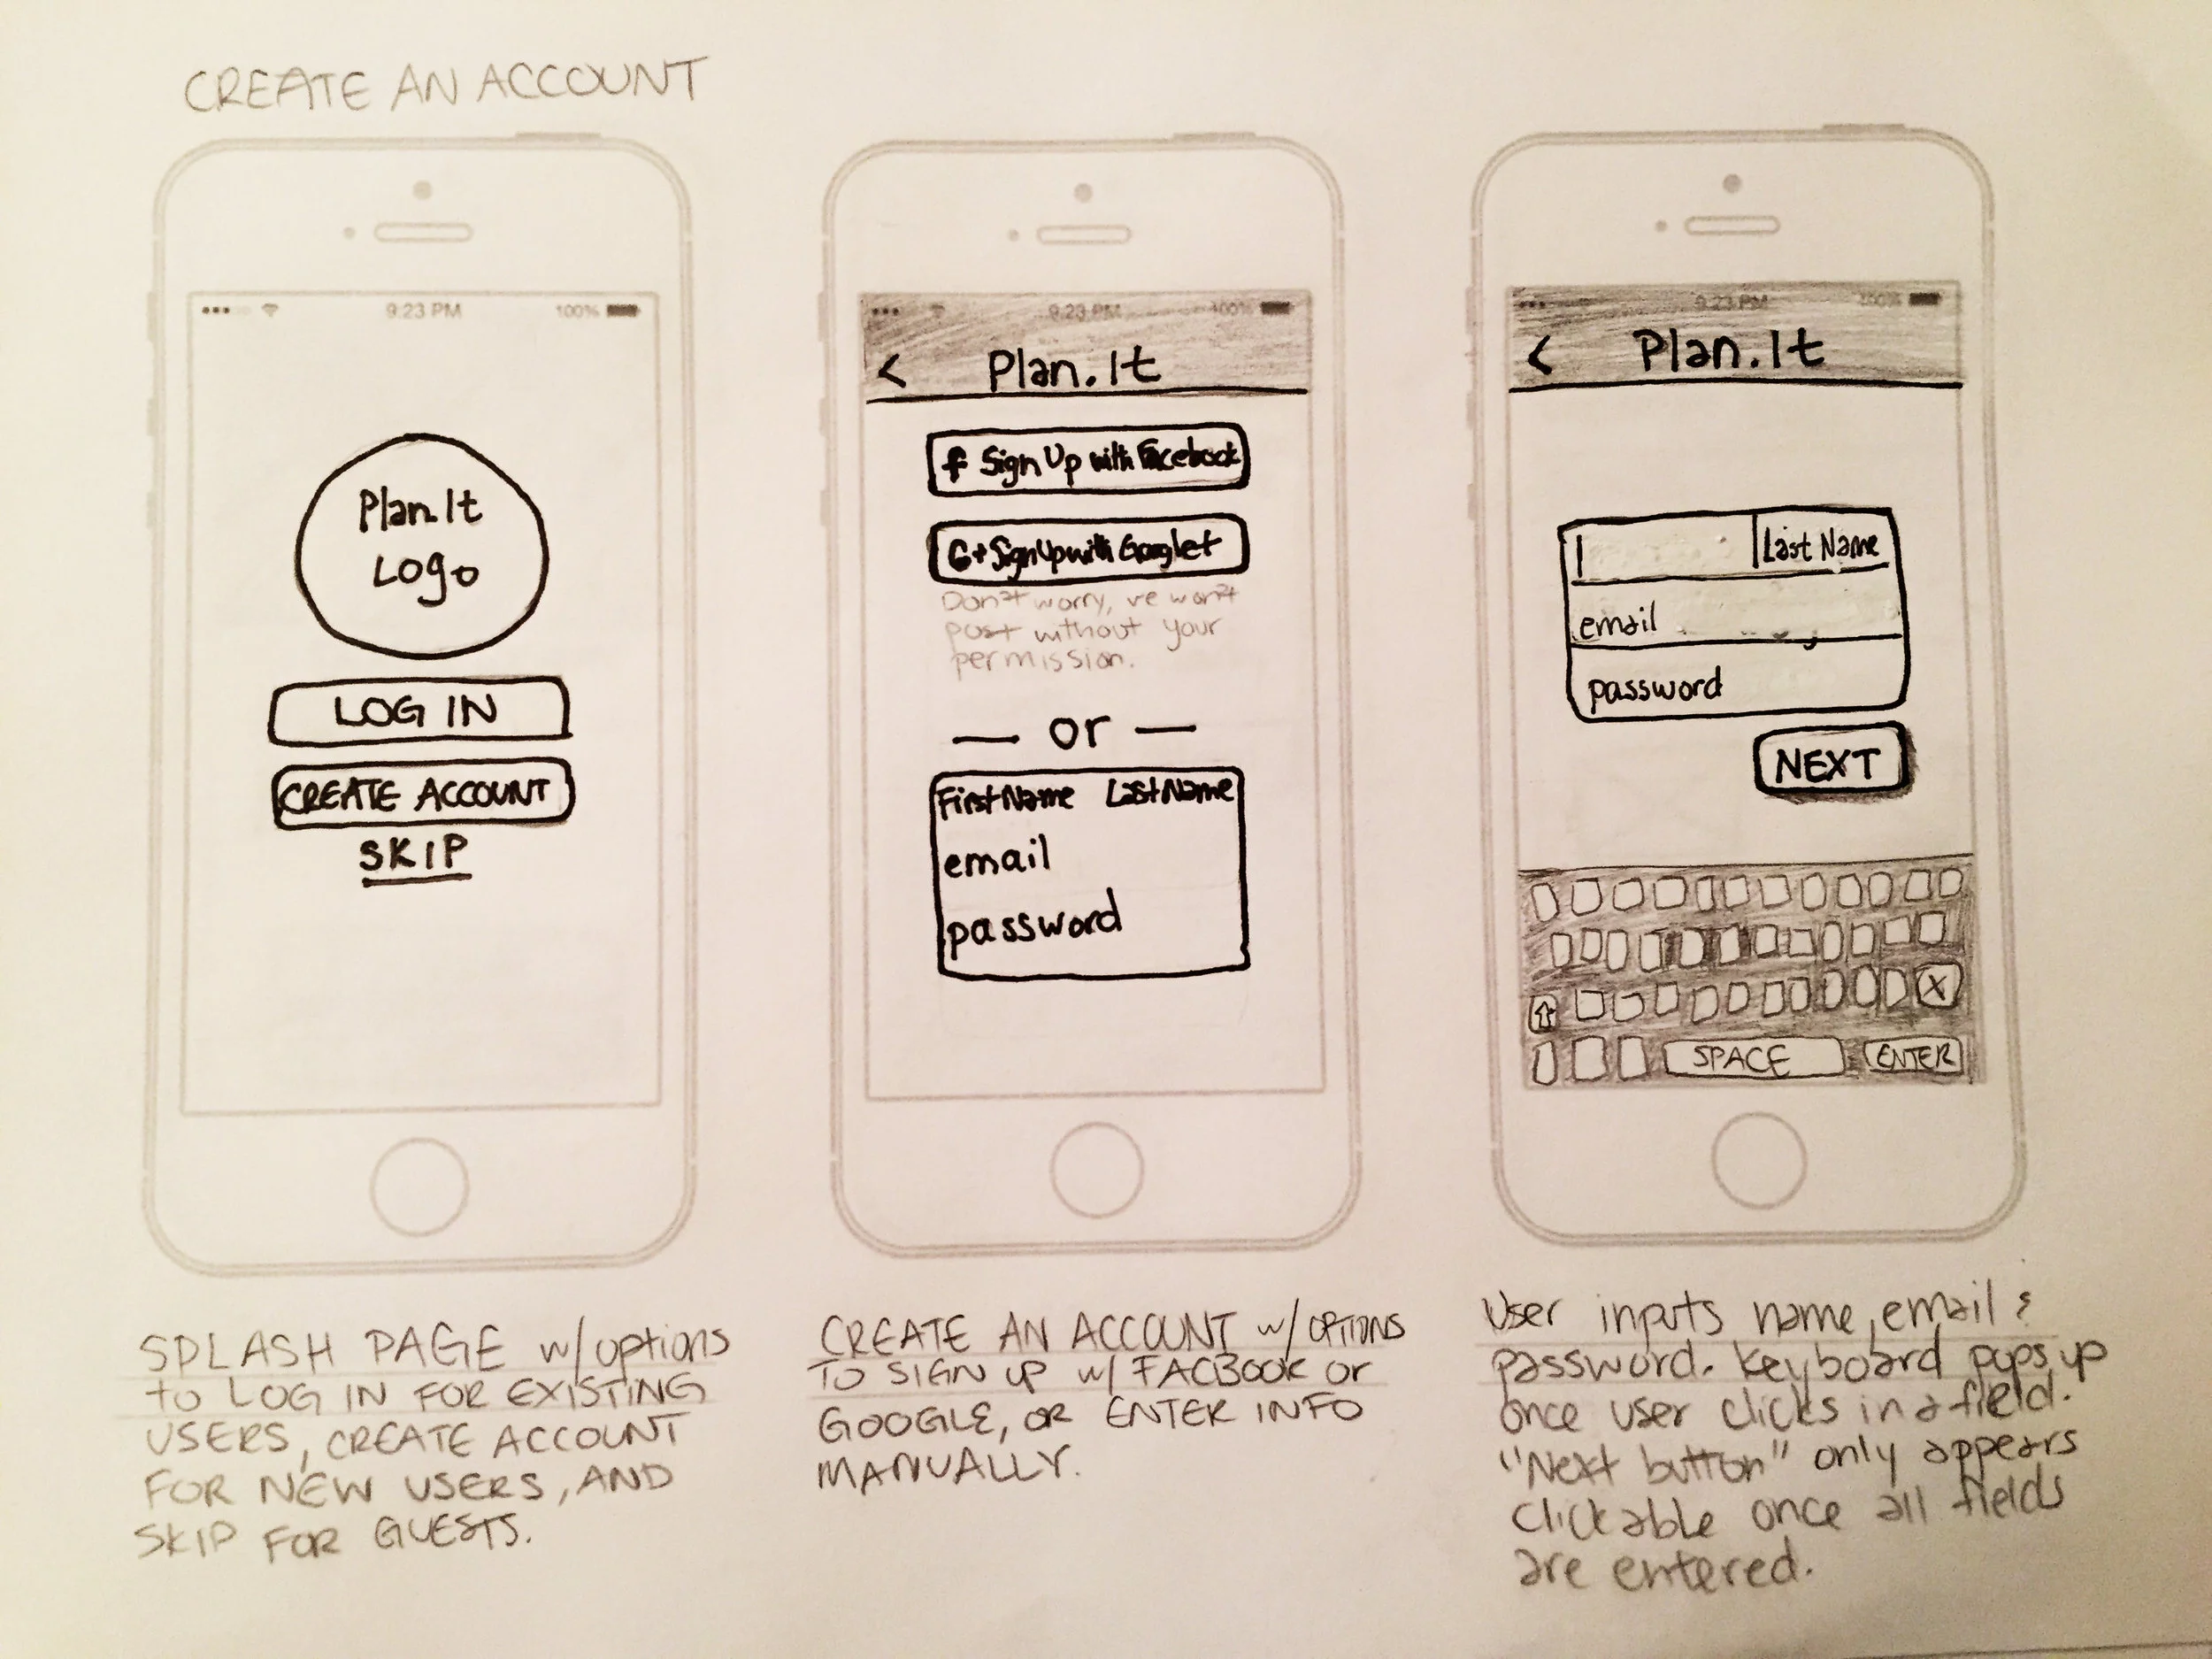 CREATE AN ACCOUNT
9:23 PM 100%
Plan.It
Logo
LOG IN
CREATE ACCOUNT
SKIP
SPLASH PAGE w/options
to LOG IN FOR EXISTING
USERS, CREATE ACCOUNT
FOR NEW USERS, AND
SKIP FOR GUESTS.
9:23 PM 100%
< Plan.It
f Sign Up with Facebook
G+ Sign Up with Google+
Don't worry, we won't
post without your
permission.
— or —
First Name Last Name
email
password
CREATE AN ACCOUNT w/ OPTIONS
TO SIGN UP w/ FACBOOK or
GOOGLE, OR ENTER INFO
MANUALLY.
9:23 PM 100%
< Plan.It
Last Name
email
password
NEXT
X
SPACE ENTER
User inputs name, email &
password. Keyboard pops up
once user clicks in a field.
"Next button" only appears
clickable once all fields
are entered.